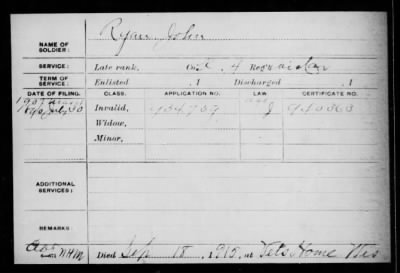 Ryan John
NAME OF SOLDIER:
SERVICE: Late rank, Co. 4 Reg't
TERM OF SERVICE: Enlisted , 1 Discharged , 1
DATE OF FILING. CLASS. APPLICATION NO. LAW. CERTIFICATE NO.
1907 Act
July 30 Invalid, 934737 940363
Widow,
Minor,
ADDITIONAL SERVICES:
REMARKS:
NHM Died Sep 18, 1915, at Vet's Home Wis